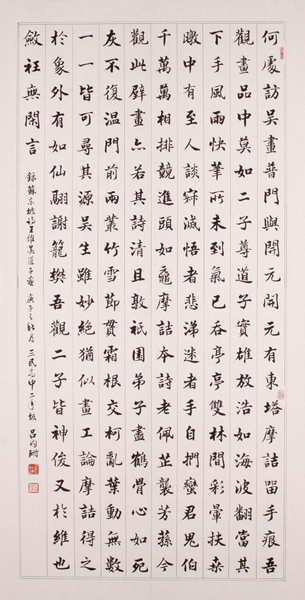 何處訪吳畫普門與開元開元有東塔摩詰留手痕吾
觀畫品中莫如二子尊道子實雄放浩如海波翻當其
下手風雨快筆所未到氣已吞亭亭雙林間彩暈扶桑
暾中有至人談寂滅悟者悲涕迷者手自捫蠻君鬼伯
千萬萬相排競進頭如黿摩詰本詩老佩芷襲芳蓀今
觀此壁畫亦若其詩清且敦祇園弟子盡鶴骨心如死
灰不復溫門前兩叢竹雪節貫霜根交柯亂葉動無數
一一皆可尋其源吳生雖妙絕猶似畫工論摩詰得之
於象外有如仙翮謝籠樊吾觀二子皆神俊又於維也
斂衽無閒言
錄蘇東坡詩王維吳道子畫 庚子之秋月 三民高中二年級 呂昀珊